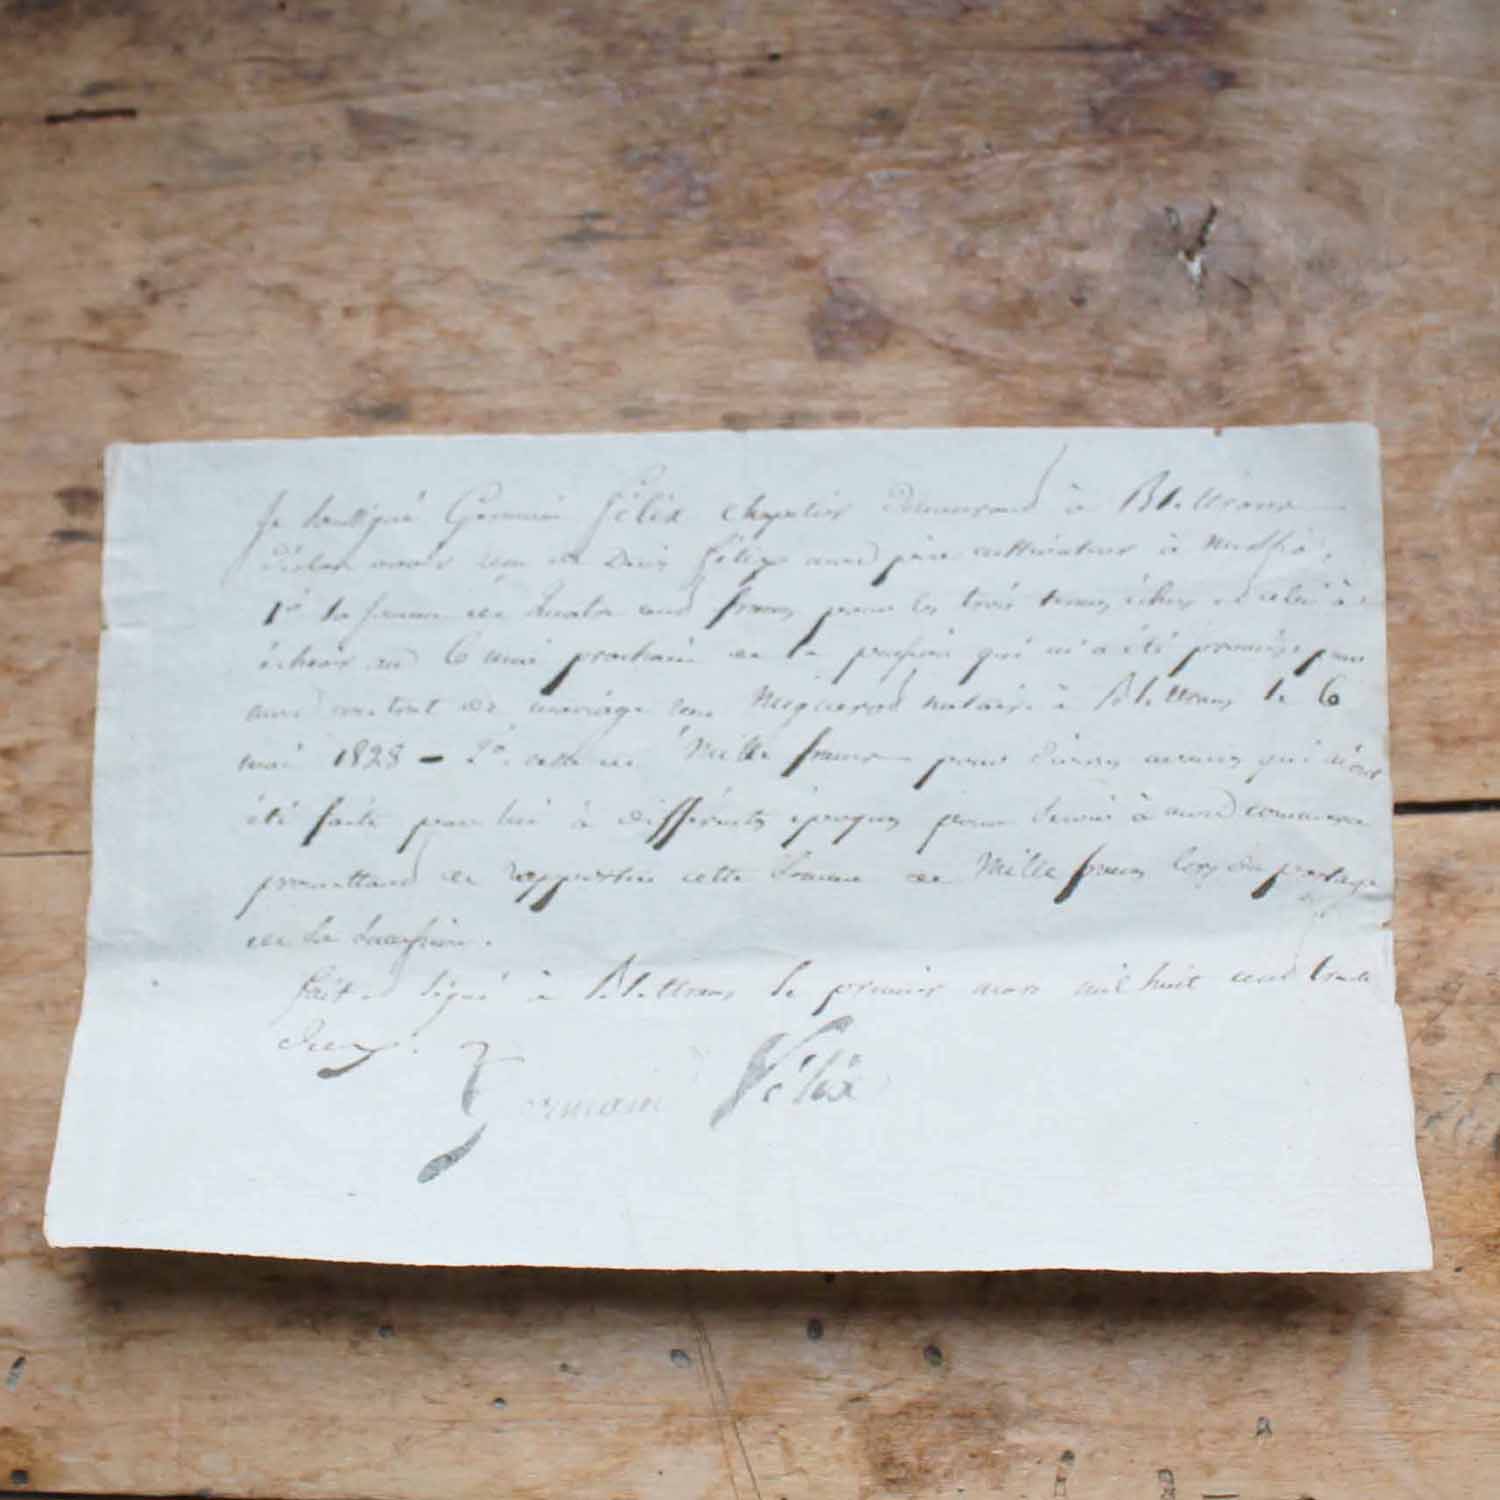 Je soussigné Germain Félix chapelier demeurant à Bletterans
déclare avoir reçu de Denis Félix mon père cultivateur à
1º la somme de quatre cent francs pour les trois termes échus et celui à
échoir au 6 mai prochain de la pension qui m'a été promise par
mon contrat de mariage reçu notaire à Bletterans le 6
mai 1828 - 2º celle de Mille francs pour diverses avances qui m'ont
été faite par lui à différentes époques pour servir à mon commerce
promettant de rapporter cette somme de Mille francs lors du partage
de sa succession.
fait et signé à Bletterans le premier mars mil huit cent trente
deux.
Germain Félix